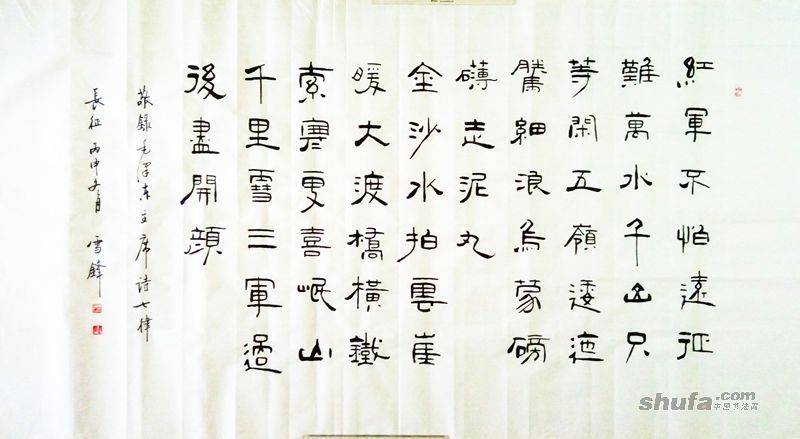 紅軍不怕遠征
難萬水千山只
等閑五嶺逶迤
騰細浪烏蒙磅
礴走泥丸
金沙水拍雲崖
暖大渡橋橫鐵
索寒更喜岷山
千里雪三軍過
後盡開顏
敬錄毛澤東主席詩七律
長征 丙申冬月 雪鋒
shufa.com
中国书法网